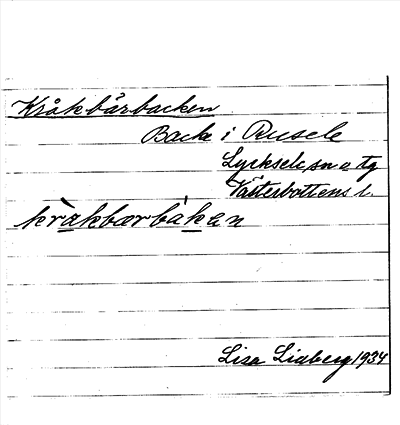 Kråkbärbacken
Backe i Rusele
Lycksele sn o tg
Västerbottens l.
kràkbærbàken
Lisa Lidberg 1934